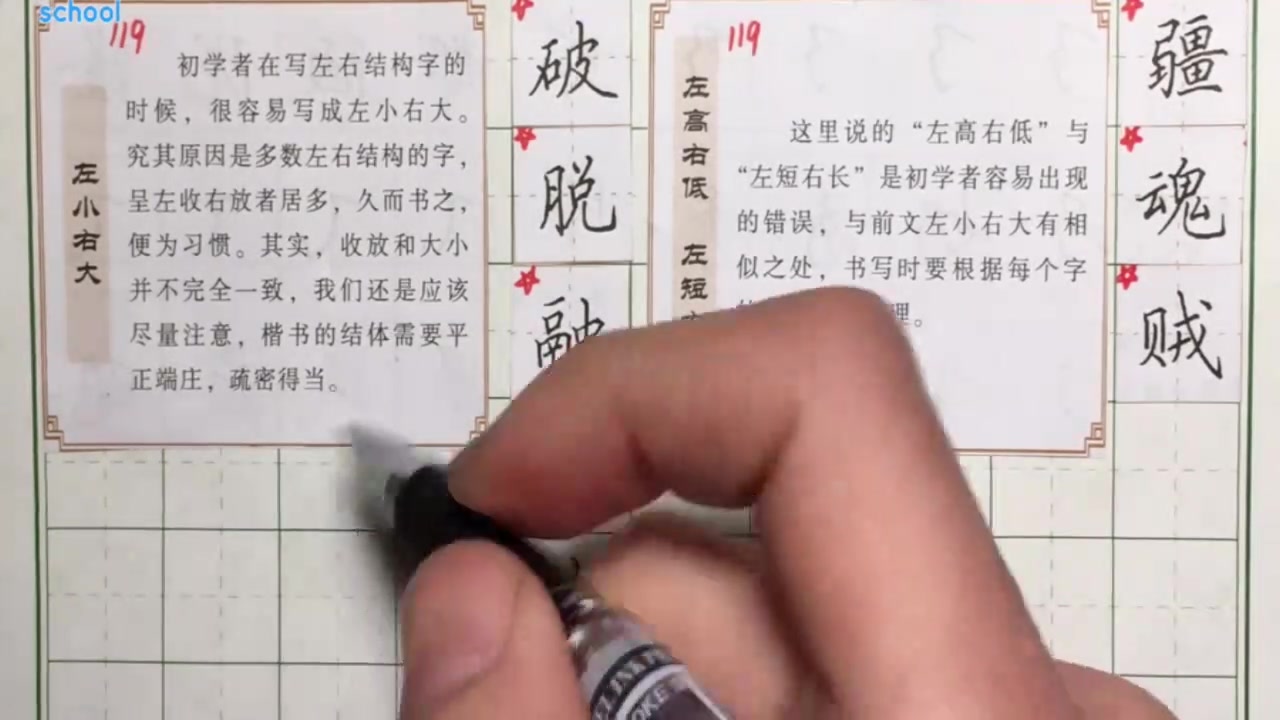 school
119
左小右大
初学者在写左右结构字的
时候，很容易写成左小右大。
究其原因是多数左右结构的字，
呈左收右放者居多，久而书之，
便为习惯。其实，收放和大小
并不完全一致，我们还是应该
尽量注意，楷书的结体需要平
正端庄，疏密得当。
破
脱
融
119
左高右低 左短
这里说的“左高右低”与
“左短右长”是初学者容易出现
的错误，与前文左小右大有相
似之处，书写时要根据每个字
理。
疆
魂
贼